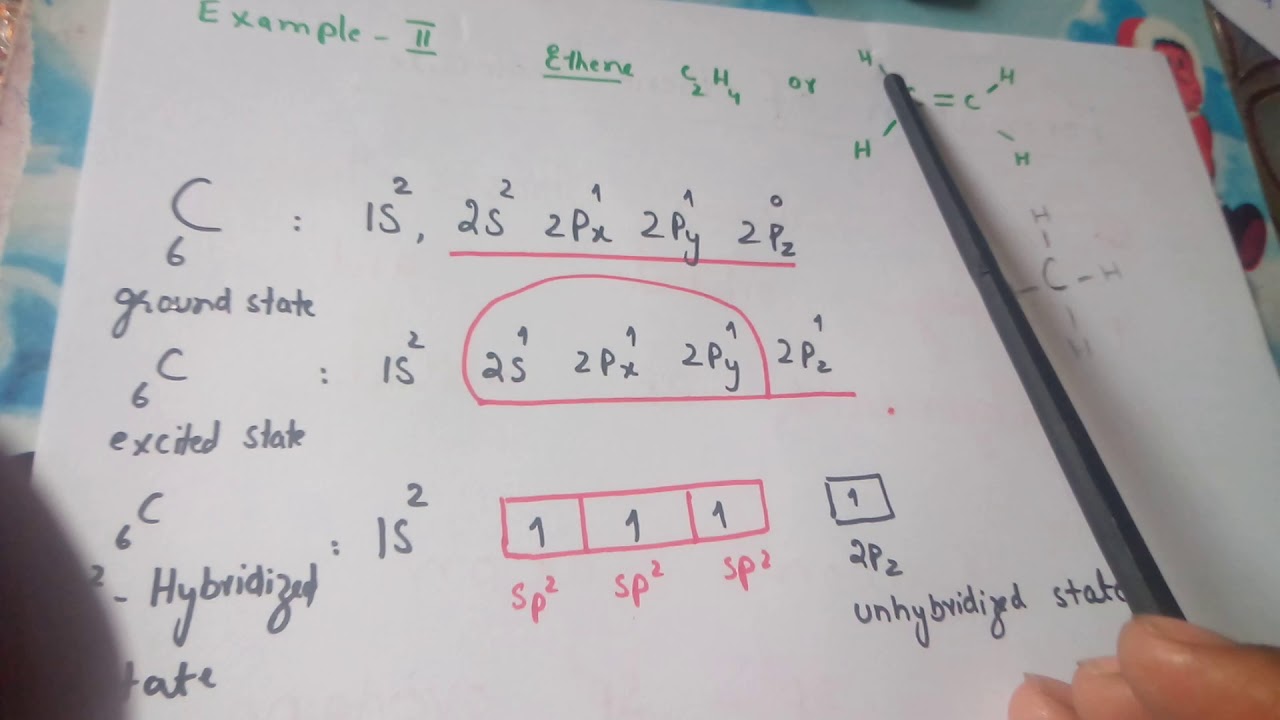 Example - II
Ethene C2H4 or
H H
C = C
H H
6C : 1S², 2S² 2Px¹ 2Py¹ 2Pz⁰
ground state
6C : 1S² 2S¹ 2Px¹ 2Py¹ 2Pz¹
excited state
6C : 1S² 1 1 1 1
² - Hybridized sp² sp² sp² 2Pz
tate unhybridized state
H
C - H
H